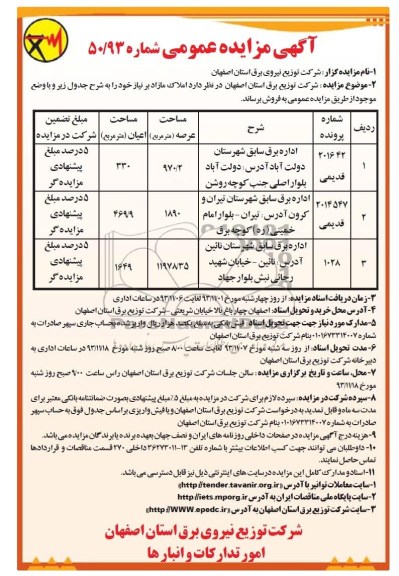 آگهی مزایده عمومی شماره ۵۰/۹۳
۱-نام مزایده گزار: شرکت توزیع نیروی برق استان اصفهان
۲-موضوع مزایده: شرکت توزیع برق استان اصفهان در نظر دارد املاک مازاد بر نیاز خود را به شرح جدول زیر و با وضع
موجود از طریق مزایده عمومی به فروش برساند.
ردیف | شماره پرونده | شرح | مساحت عرصه (مترمربع) | مساحت اعیان (مترمربع) | مبلغ تضمین شرکت در مزایده
۱ | ۲۰۱۶۴۲ قدیمی | اداره برق سابق شهرستان دولت آباد آدرس: دولت آباد بلوار اصلی جنب کوچه روشن | ۹۷۰/۲ | ۳۳۰ | ۵ درصد مبلغ پیشنهادی مزایده گر
۲ | ۲۰۱۴۵۴۷ قدیمی | اداره برق سابق شهرستان تیران و کرون آدرس: تیران - بلوار امام خمینی (ره) کوچه برق | ۱۸۹۰ | ۴۶۹/۹ | ۵ درصد مبلغ پیشنهادی مزایده گر
۳ | ۱۰۲۸ | اداره برق سابق شهرستان نائین آدرس: نائین - خیابان شهید رجائی نبش بلوار جهاد | ۱۱۹۷۸/۳۵ | ۱۶۴۹ | ۵ درصد مبلغ پیشنهادی مزایده گر
۳-زمان دریافت اسناد مزایده: از روز چهارشنبه مورخ ۹۳/۱۱/۰۱ لغایت ۹۳/۱۱/۰۶ در ساعات اداری
۴-آدرس محل خرید و تحویل اسناد: اصفهان چهارباغ بالا خیابان شریعتی - شرکت توزیع برق استان اصفهان
۵-مدارک مورد نیاز جهت تحویل اسناد: فیش بانکی به مبلغ ریال واریز شده به حساب جاری سپهر صادرات به
شماره ۰۱۰۱۶۷۳۳۱۴۰۰۷ بنام شرکت توزیع برق استان اصفهان
۶-مدت تحویل اسناد: از روز سه شنبه مورخ ۹۳/۱۱/۰۷ لغایت ساعت ۸:۰۰ صبح روز شنبه مورخ ۹۳/۱۱/۱۸ در ساعات اداری به
دبیرخانه شرکت توزیع برق استان اصفهان
۷-محل، ساعت و تاریخ برگزاری مزایده: سالن جلسات شرکت توزیع برق استان اصفهان راس ساعت ۹:۰۰ صبح روز شنبه
مورخ ۹۳/۱۱/۱۸
۸-سپرده شرکت در مزایده: سپرده لازم برای شرکت در مزایده به مبلغ ۵٪ مبلغ پیشنهادی بصورت ضمانتنامه بانکی معتبر برای
مدت سه ماه و قابل تمدید به درخواست شرکت توزیع برق استان اصفهان و یا فیش واریزی براساس جدول فوق به حساب سپهر
صادرات به شماره ۰۱۰۱۶۷۳۳۱۴۰۰۷ بنام شرکت توزیع برق استان اصفهان
۹-هزینه درج آگهی مزایده در صفحات داخلی روزنامه های ایران و نصف جهان بعهده برنده یا برندگان مزایده می باشد.
۱۰-داوطلبان می توانند جهت کسب اطلاعات بیشتر با شماره تلفن ۱۳-۳۶۲۷۳۰۱۱ داخلی ۲۷۰ قسمت مناقصات و قراردادها
تماس حاصل نمایند.
۱۱-اسناد و مدارک کامل این مزایده در سایت های اینترنتی ذیل نیز قابل دسترسی می باشد.
۱-سایت معاملات توانیر با آدرس (http://tender.tavanir.org.ir)
۲-سایت پایگاه ملی مناقصات ایران به آدرس http://iets.mporg.ir
۳-سایت شرکت توزیع برق استان اصفهان به آدرس (http://WWW.epedc.ir)
شرکت توزیع نیروی برق استان اصفهان
امور تدارکات و انبارها